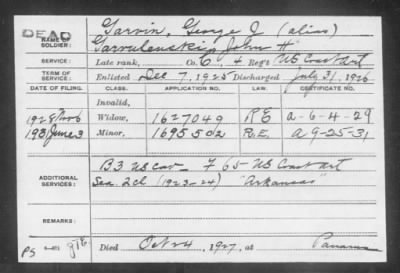 DEAD
NAME OF SOLDIER: Garvin, George J (alias)
Garvulenski, John H
SERVICE: Late rank, Co. C, 4 Reg't US Coast Art
TERM OF SERVICE: Enlisted Dec 7, 1925 Discharged July 31, 1926
DATE OF FILING. CLASS. APPLICATION NO. CERTIFICATE NO.
Invalid,
1928 Widow, 1627049 RE a-6-4-29
1931 June 3 Minor, 1695502 R.E. a 9-25-31
ADDITIONAL SERVICES: B3 US Cav - F 65 - US Coast Art
Sea. 2cl (1923-24) "Arkansas"
REMARKS:
PS
Died Oct 24, 1927, at Panama